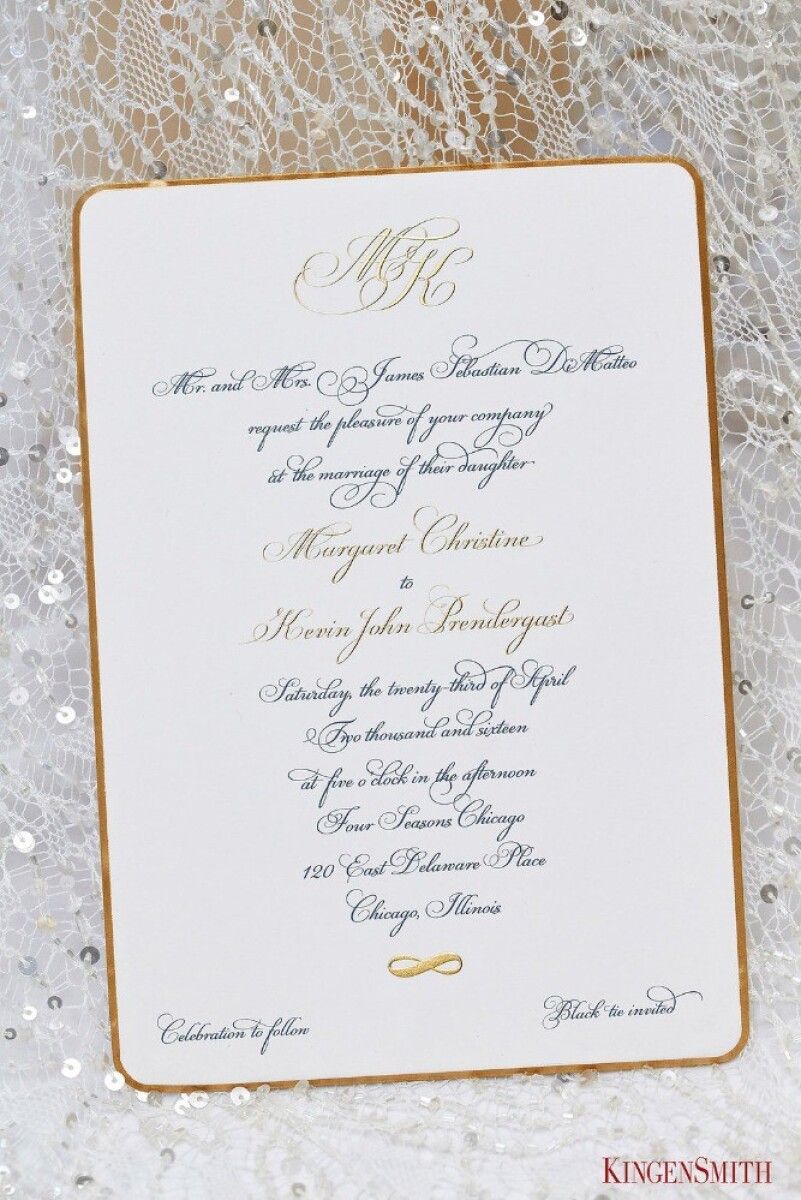 M&K
Mr. and Mrs. James Sebastian DeMatteo
request the pleasure of your company
at the marriage of their daughter
Margaret Christine
to
Kevin John Prendergast
Saturday, the twenty-third of April
Two thousand and sixteen
at five o'clock in the afternoon
Four Seasons Chicago
120 East Delaware Place
Chicago, Illinois
Celebration to follow
Black tie invited
KINGENSMITH